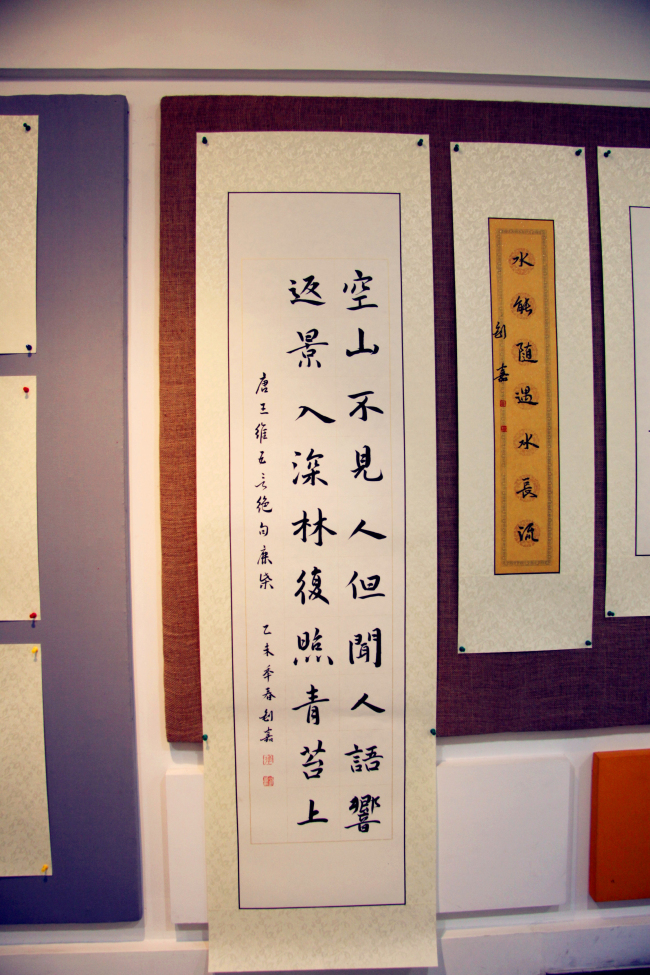 空山不見人但聞人語響
返景入深林復照青苔上
唐王維五言絕句鹿柴 乙未季春 嘉
水能随遇水長流
嘉